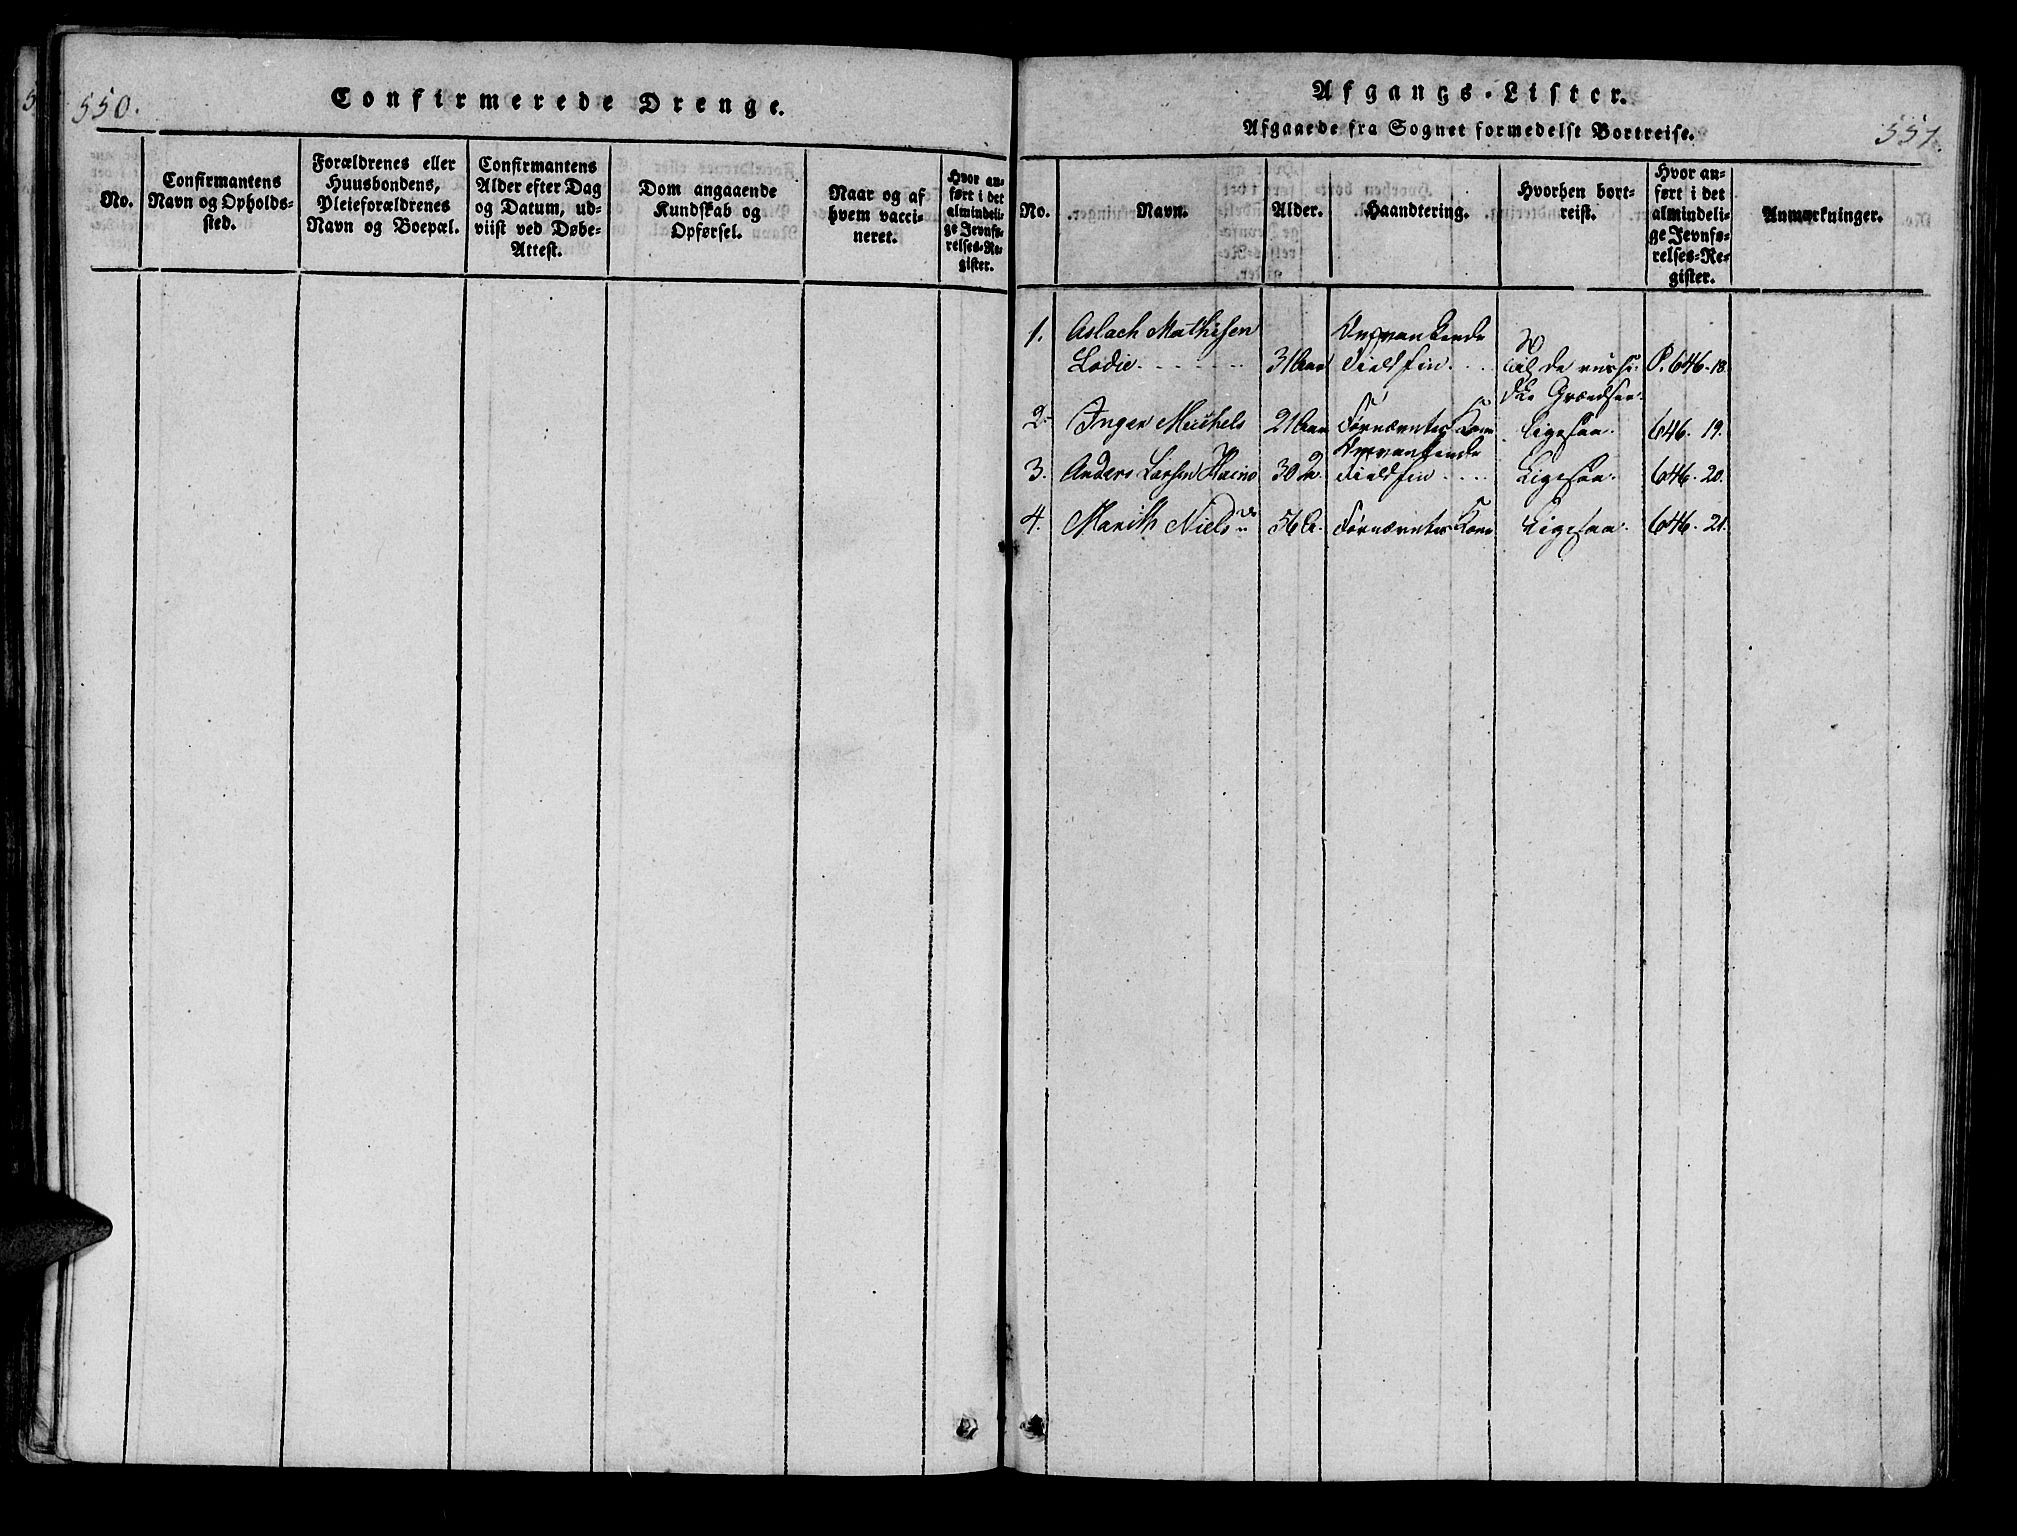 550.
Confirmerede Drenge.
No.
Confirmantens
Navn og Opholds-
sted.
Forældrenes eller
Huusbondens,
Pleieforældrenes
Navn og Boepæl.
Confirmantens
Alder efter Dag
og Datum, ud-
viist ved Døbe-
Attest.
Dom angaaende
Kundskab og
Opførsel.
Naar og af
hvem vacci-
neret.
Hvor an-
ført i det
almindeli-
ge Jevnfø-
relses-Re-
gister.
Afgangs-Lister.
Afgaaede fra Sognet formedelst Bortreise.
551.
No.
Navn.
Alder.
Haandtering.
Hvorhen bort-
reist.
Hvor an-
ført i det
almindeli-
ge Jevnfø-
relses-Re-
gister.
Anmærkninger.
1. Aslach Mathisen Omvankende
Ladie 31 Aar Fieldfin til de russi- P. 646. 18.
ske Grændser.
2. Inger Michels 21 Aar Fornævntes Kone ligesaa. 646. 19.
Omvankende
3. Anders Larsen 30 A. Fieldfin Ligesaa. 646. 20.
4. Marith Nielsd 36 A. Fornævntes Kone Ligesaa. 646. 21.